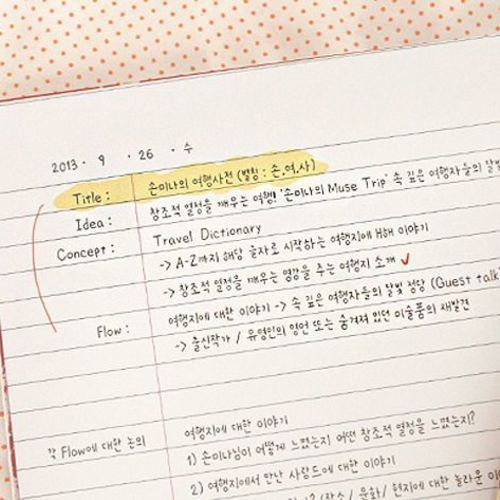 2013 · 9 · 26 · 수
Title : 손미나의 여행사전 (별칭 : 손.여.사)
Idea : 창조적 열정을 깨우는 여행! '손미나의 Muse Trip' 속 깊은 여행자들의 달빛
Concept : Travel Dictionary
-> A-Z까지 해당 글자로 시작하는 여행지에 대해 이야기
-> 창조적 열정을 깨우는 영감을 주는 여행지 소개
Flow : 여행지에 대한 이야기 -> 속 깊은 여행자들의 달빛 정담 (Guest talk)
-> 출신작가 / 유명인의 명언 또는 숨겨져 있던 미술품의 재발견
각 Flow에 대한 논의 여행지에 대한 이야기
1) 손미나님이 어떻게 느꼈는지 어떤 창조적 열정을 느꼈는지?
2) 여행지에서 만난 사람들에 대한 이야기
/ 문화 / 현지에 대한 놀라운 이